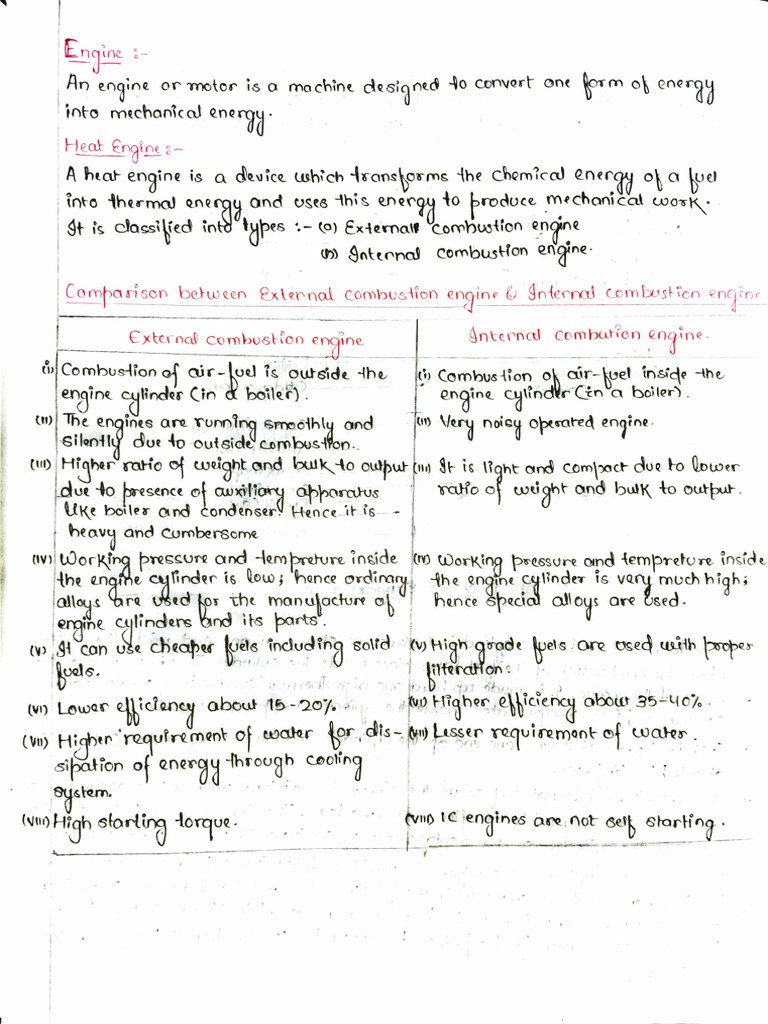 Engine :-
An engine or motor is a machine designed to convert one form of energy
into mechanical energy.
Heat Engine :-
A heat engine is a device which transforms the chemical energy of a fuel
into thermal energy and uses this energy to produce mechanical work.
It is classified into types :- (a) External combustion engine
(b) Internal combustion engine.
Comparison between External combustion engine & Internal combustion engine
External combustion engine
(i) Combustion of air-fuel is outside the
engine cylinder (in a boiler).
(ii) The engines are running smoothly and
silently due to outside combustion.
(iii) Higher ratio of weight and bulk to output
due to presence of auxiliary apparatus
like boiler and condenser. Hence it is -
heavy and cumbersome
(iv) Working pressure and tempreture inside
the engine cylinder is low; hence ordinary
alloys are used for the manufacture of
engine cylinders and its parts.
(v) It can use cheaper fuels including solid
fuels.
(vi) Lower efficiency about 15-20%.
(vii) Higher requirement of water for dis-
sipation of energy through cooling
system.
(viii) High starting torque.
Internal combution engine.
(i) Combustion of air-fuel inside the
engine cylinder (in a boiler).
(ii) Very noisy operated engine.
(iii) It is light and compact due to lower
ratio of weight and bulk to output.
(iv) Working pressure and tempreture inside
the engine cylinder is very much high;
hence special alloys are used.
(v) High grade fuels are used with proper
filteration.
(vi) Higher efficiency about 35-40%.
(vii) Lesser requirement of water.
(viii) IC engines are not self starting.